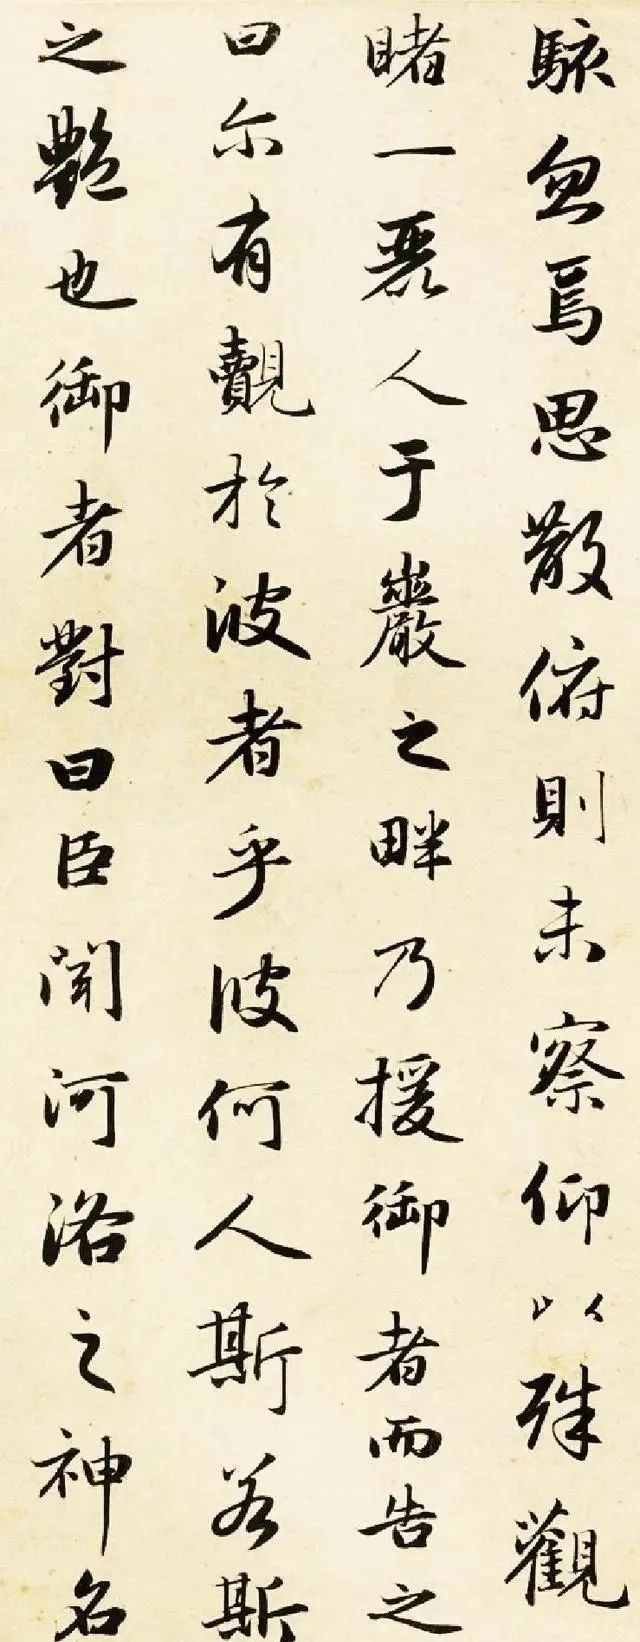 駭忽焉思散俯則未察仰以殊觀
睹一麗人于巖之畔乃援御者而告之
曰尔有觌於彼者乎彼何人斯若斯
之艷也御者對曰臣聞河洛之神名